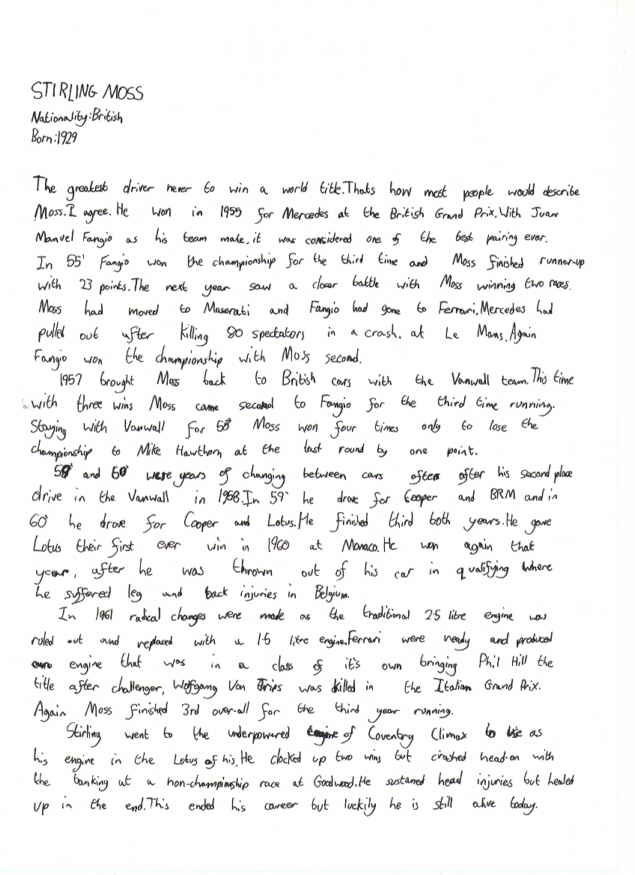 STIRLING MOSS
Nationality: British
Born: 1929
The greatest driver never to win a world title. Thats how most people would describe
Moss. I agree. He won in 1955 for Mercedes at the British Grand Prix. With Juan
Manuel Fangio as his team mate, it was considered one of the best pairing ever.
In 55' Fangio won the championship for the third time and Moss finished runner-up
with 23 points. The next year saw a closer battle with Moss winning two races.
Moss had moved to Maserati and Fangio had gone to Ferrari. Mercedes had
pulled out after killing 80 spectators in a crash, at Le Mans. Again
Fangio won the championship with Moss second.
1957 brought Moss back to British cars with the Vanwall team. This time
with three wins Moss came second to Fangio for the third time running.
Staying with Vanwall for 58' Moss won four times only to lose the
championship to Mike Hawthorn at the last round by one point.
59' and 60' were years of changing between cars after his second place
drive in the Vanwall in 1958. In 59' he drove for Cooper and BRM and in
60' he drove for Cooper and Lotus. He finished third both years. He gave
Lotus their first ever win in 1960 at Monaco. He won again that
year, after he was thrown out of his car in qualifying where
he suffered leg and back injuries in Belgium.
In 1961 radical changes were made as the traditional 2.5 litre engine was
ruled out and replaced with a 1.5 litre engine. Ferrari were ready and produced
engine that was in a class of it's own bringing Phil Hill the
title after challenger, Wolfgang Von Trips was killed in the Italian Grand Prix.
Again Moss finished 3rd over-all for the third year running.
Stirling went to the underpowered engine of Coventry Climax to use as
his engine in the Lotus of his. He clocked up two wins but crashed head-on with
the banking at a non-championship race at Goodwood. He sustaned head injuries but healed
up in the end. This ended his career but luckily he is still alive today.